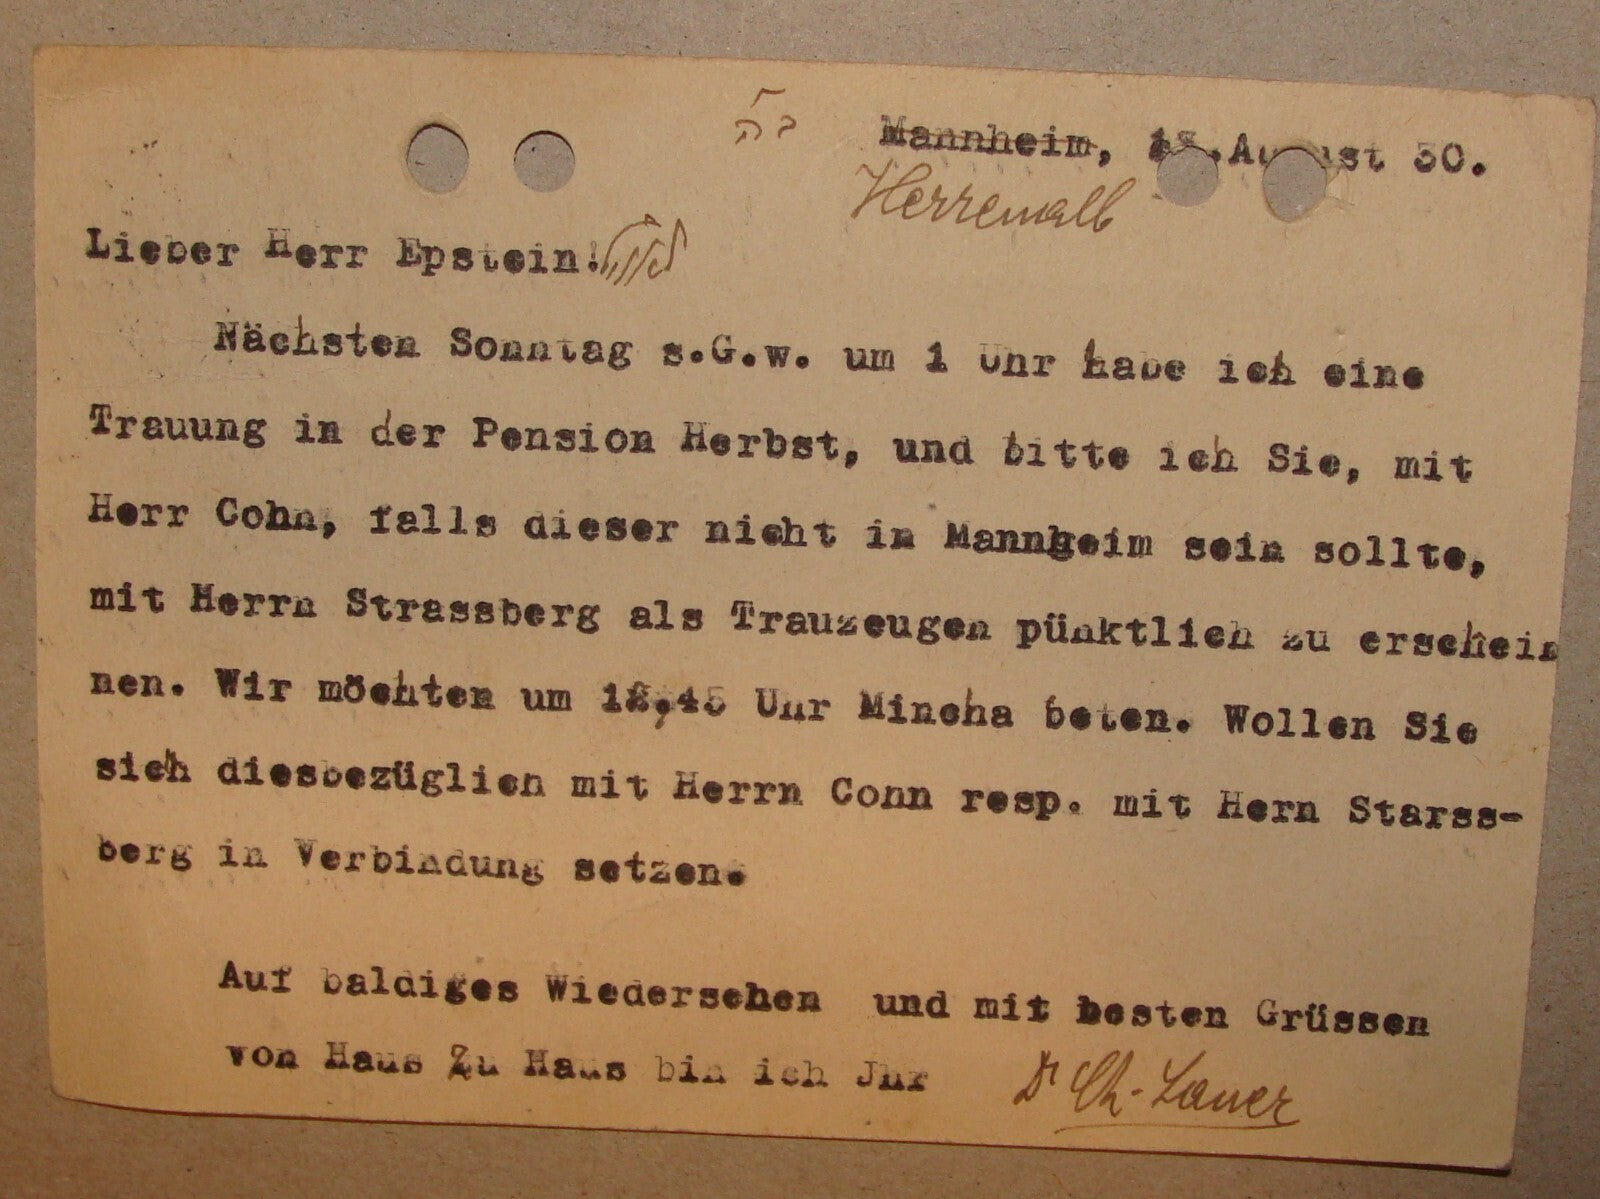 ב״ה
Mannheim, 18.August 30.
Herrenalb
Lieber Herr Epstein!
Nächsten Sonntag s.G.w. um 1 Uhr habe ich eine
Trauung in der Pension Herbst, und bitte ich Sie, mit
Herr Cohn, falls dieser nicht in Mannheim sein sollte,
mit Herrn Strassberg als Trauzeugen pünktlich zu erschein
nen. Wir möchten um 12,45 Uhr Mincha beten. Wollen Sie
sich diesbezüglich mit Herrn Cohn resp. mit Hern Starss-
berg in Verbindung setzen.
Auf baldiges Wiedersehen und mit besten Grüssen
von Haus Zu Haus bin ich Jhr Dr Ch. Lauer